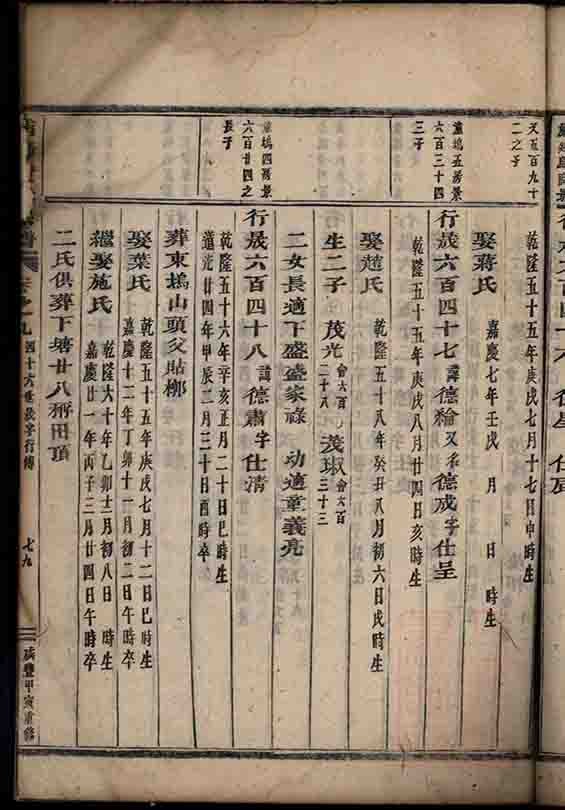 又五百九十
二之子
乾隆五十五年庚戌七月十七日申時生
娶蔣氏 嘉慶七年壬戌 月 日 時生
塢五房景
六百三十四
三子
行晟六百四十七 諱德綸又 德成字仕呈
乾隆五十五年庚戌八月廿四日亥時生
娶趙氏 乾隆五十八年癸丑八月初六日戌時生
生二子 茂光 會六百二十八 茂琡 會六百三十三
二女長適下盛盛家祿 幼適童義亮
塢四房景
六百廿四之
長子
行晟六百四十八 諱德肅字仕清
乾隆五十六年辛亥正月二十日巳時生
道光廿四年甲辰二月三十日酉時卒
葬東塢山頭父貼
娶葉氏 乾隆五十五年庚戌七月十二日巳時生
嘉慶十二年丁卯十一月初二日午時卒
繼娶施氏 乾隆六十年乙卯十二月初八日 時生
嘉慶廿一年丙子三月廿四日午時卒
二氏俱葬下塘廿八秤田頂
卷之九 四十六世晟字行傳 七九 咸豐甲寅重修